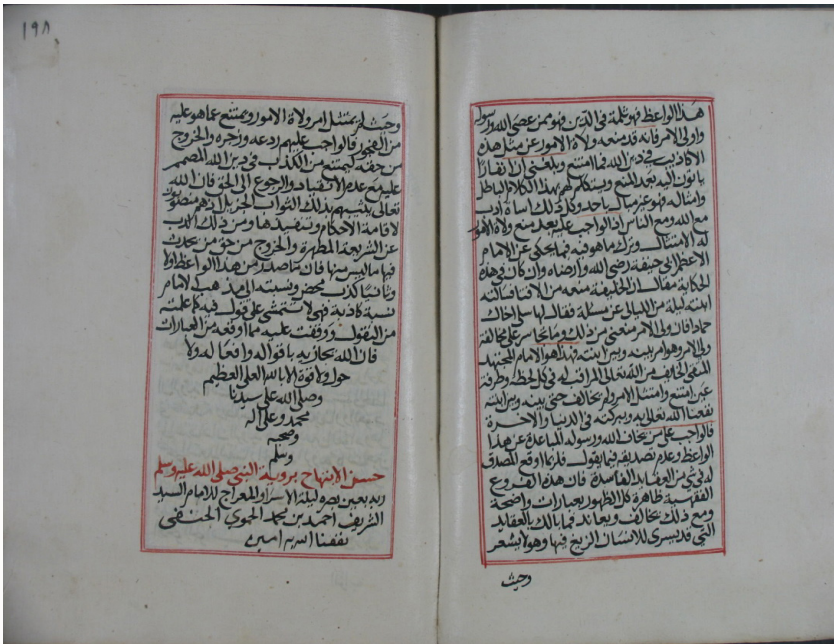 هذا الواعظ فهو ثلمة فى الدين فهو ممن عصى الله ورسوله
واولى الامر فانه قد منعه ولاة الامور عن مثل هذه
الاكاذيب فى دين الله فما امتنع وبلغنى ان انفارا
ياتون اليه بعد المنع ويتكلم لهم بهذا الكلام الباطل
وامثاله فهو عزم وكل ذلك اساءة ادب
مع الله ومع الناس اذ الواجب عليه بعد منع ولاة الامور
له الامتثال وترك ما هو فيه فيما يحكى عن الامام
الاعظم ابى حنيفة رضى الله وارضاه وان كان فى هذه
الحكاية مقال ان الخليفة منعه من الافتا فسالته
ابنته ليلة من الليالى عن مسئلة فقال لها سلى اخاك
حمادا فان ولى الامر منعنى من ذلك وما تجاسر على مخالفة
ولى الامر وهو امر بينه وبين ابنته فهذا هو الامام المجتهد
المتقى الخايف من الله تعالى المراقب له فى كل لحظة وطرفة
عين امتنع وامتثل الامر ولم يخالف حتى بينه وبين ابنته
نفعنا الله تعالى به وببركته فى الدنيا والاخرة
فالواجب على من يخاف الله ورسوله المباعدة عن هذا
الواعظ وعدم تصديقه فيما يقول فلربما اوقع المصدق
له فى شئ من العقايد الفاسدة فان هذه الفروع
الفقهية ظاهرة كل الظهور بعبارات واضحة
ومع ذلك يخالف ويعاند فما بالك بالعقايد
التى قد يسرى للانسان الزيغ فيها وهو لا يشعر
وحيث
١٩٨
وحيث لم يمتثل امر ولاة الامور ويمتنع عما هو عليه
من الفجور فالواجب عليهم ردعه وزجره والخروج
من حقه ليمتنع من الكذب فى دين الله المصمم
عليه مع عدم الانقياد والرجوع الى الحق فان الله
تعالى يثيبهم بذلك الثواب الجزيل لانهم منصوبون
لاقامة الاحكام وتنفيذها ومن ذلك الذب
عن الشريعة المطهرة والخروج من حق من يحدث
فيها ما ليس منها فان ما صدر من هذا الواعظ اولا
وثانيا كذب محض ونسبته الى مذهب الامام
نسبة كاذبة فهى لا تتمشى على قول فيه كما علمته
من النقول ووقفت عليه مما اوقعه من العبارات
فان الله يجازيه باقواله وافعاله ولا
حول ولا قوة الا بالله العلى العظيم
وصلى الله على سيدنا
محمد وعلى اله
وصحبه
وسلم
حسن الابتهاج بروية النبى صلى الله عليه وسلم
ربه بعين بصره ليلة الاسرا والمعراج للامام السيد
الشريف احمد بن محمد الحموى الحنفى
نفعنا الله به امين